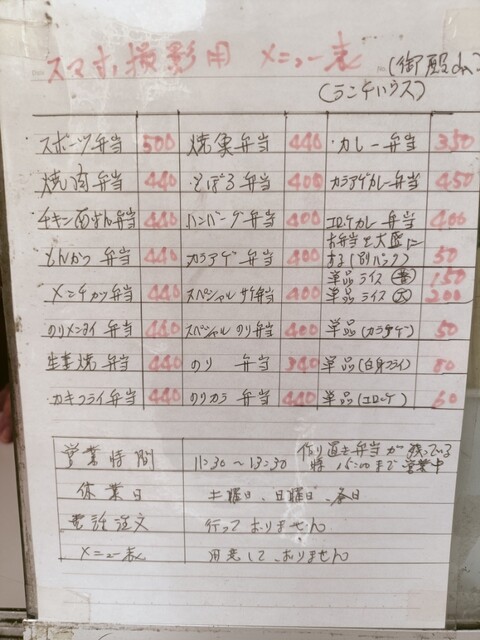 スマホ撮影用 メニュー表
(御殿
(ランチハウス)
スポーツ弁当 500 焼魚弁当 440 カレー弁当 350
焼肉弁当 440 そぼろ弁当 400 カラアゲカレー弁当 450
チキン南ばん弁当 440 ハンバーグ弁当 400 コロッケカレー弁当 400
とんかつ弁当 440 カラアゲ弁当 400 お弁当を大盛にする(別パック) 50
メンチカツ弁当 440 スペシャル弁当 400 単品ライス(普) 150
単品ライス(大) 200
のりメンタイ弁当 440 スペシャルのり弁当 400 単品(カラアゲ) 50
生姜焼弁当 440 のり弁当 340 単品(白身フライ) 80
カキフライ弁当 440 のりカラ弁当 440 単品(コロッケ) 60
営業時間 11:30〜13:30 作り置き弁当が残っている
時 15:00まで営業中
休業日 土曜日、日曜日、祭日
電話注文 行っておりません
メニュー表 用意しておりません